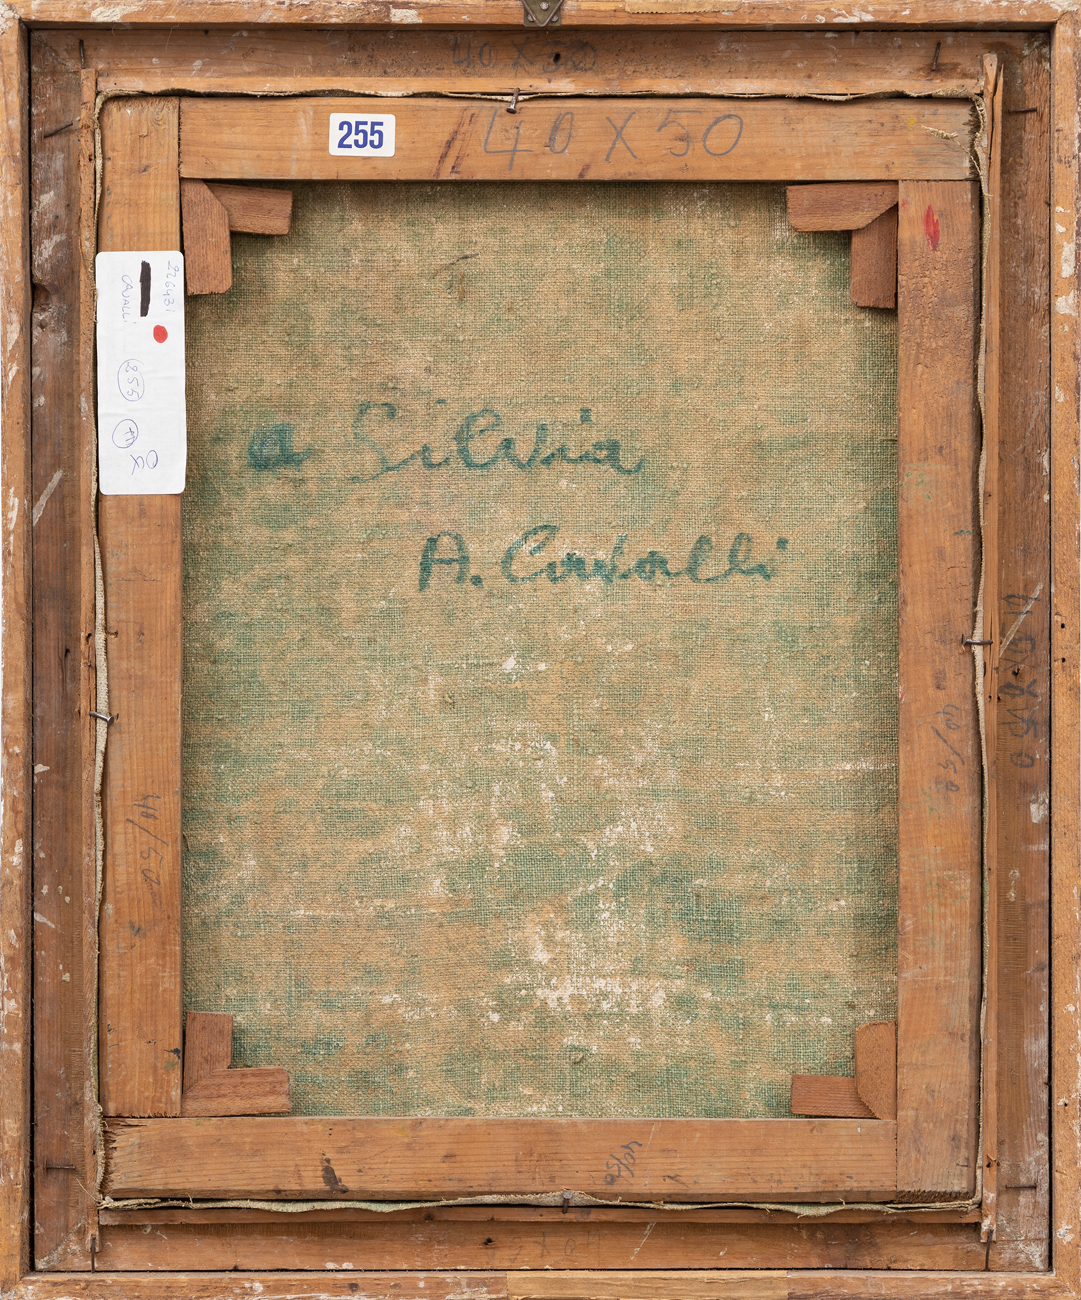 40 X 50
255
40 X 50
22643i
CAVALLi
255
a Silvia
A. Cavalli
40/50
40/50
40X50
40/50